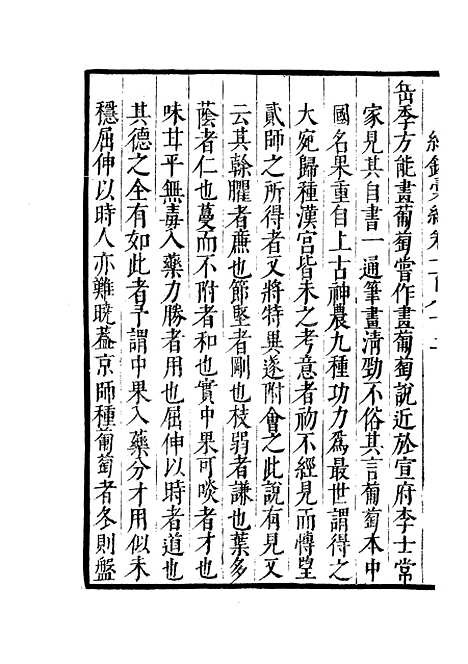 岳季方能畫葡萄嘗作畫葡萄說近於宣府李士常
家見其自書一通筆畫清勁不俗其言葡萄本中
國名果重自上古神農九種功力爲最世謂得之
大宛歸種漢宮皆未之考意者初不經見而慱望
貳師之所得者又將特異遂附會之此說有見又
云其榦臞者廉也節堅者剛也枝弱者謙也葉多
蔭者仁也蔓而不附者和也實中果可啖者才也
味甘平無毒入藥力勝者用也屈伸以時者道也
其德之全有如此者予謂中果入藥分才用似未
穩屈伸以時人亦難曉蓋京師種葡萄者冬則盤